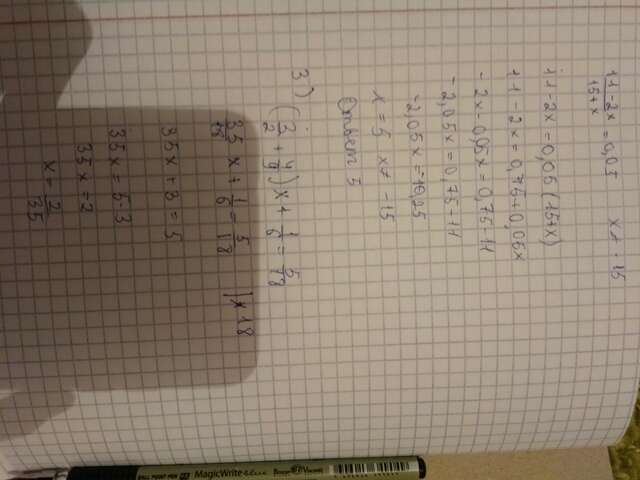 (11-2x)/(15+x) = 0,05 x ≠ -15
11-2x = 0,05(15+x)
11-2x = 0,75+0,05x
-2x-0,05x = 0,75-11
-2,05x = 0,75-11
-2,05x = -10,25
x = 5 x ≠ -15
Ответ 5
3) (3/2 + 4/9)x + 1/6 = 5/18
35/18 x + 1/6 = 5/18 | × 18
35x + 3 = 5
35x = 5-3
35x = 2
x = 2/35
BALL POINT PEN MagicWrite Bruno Visconti